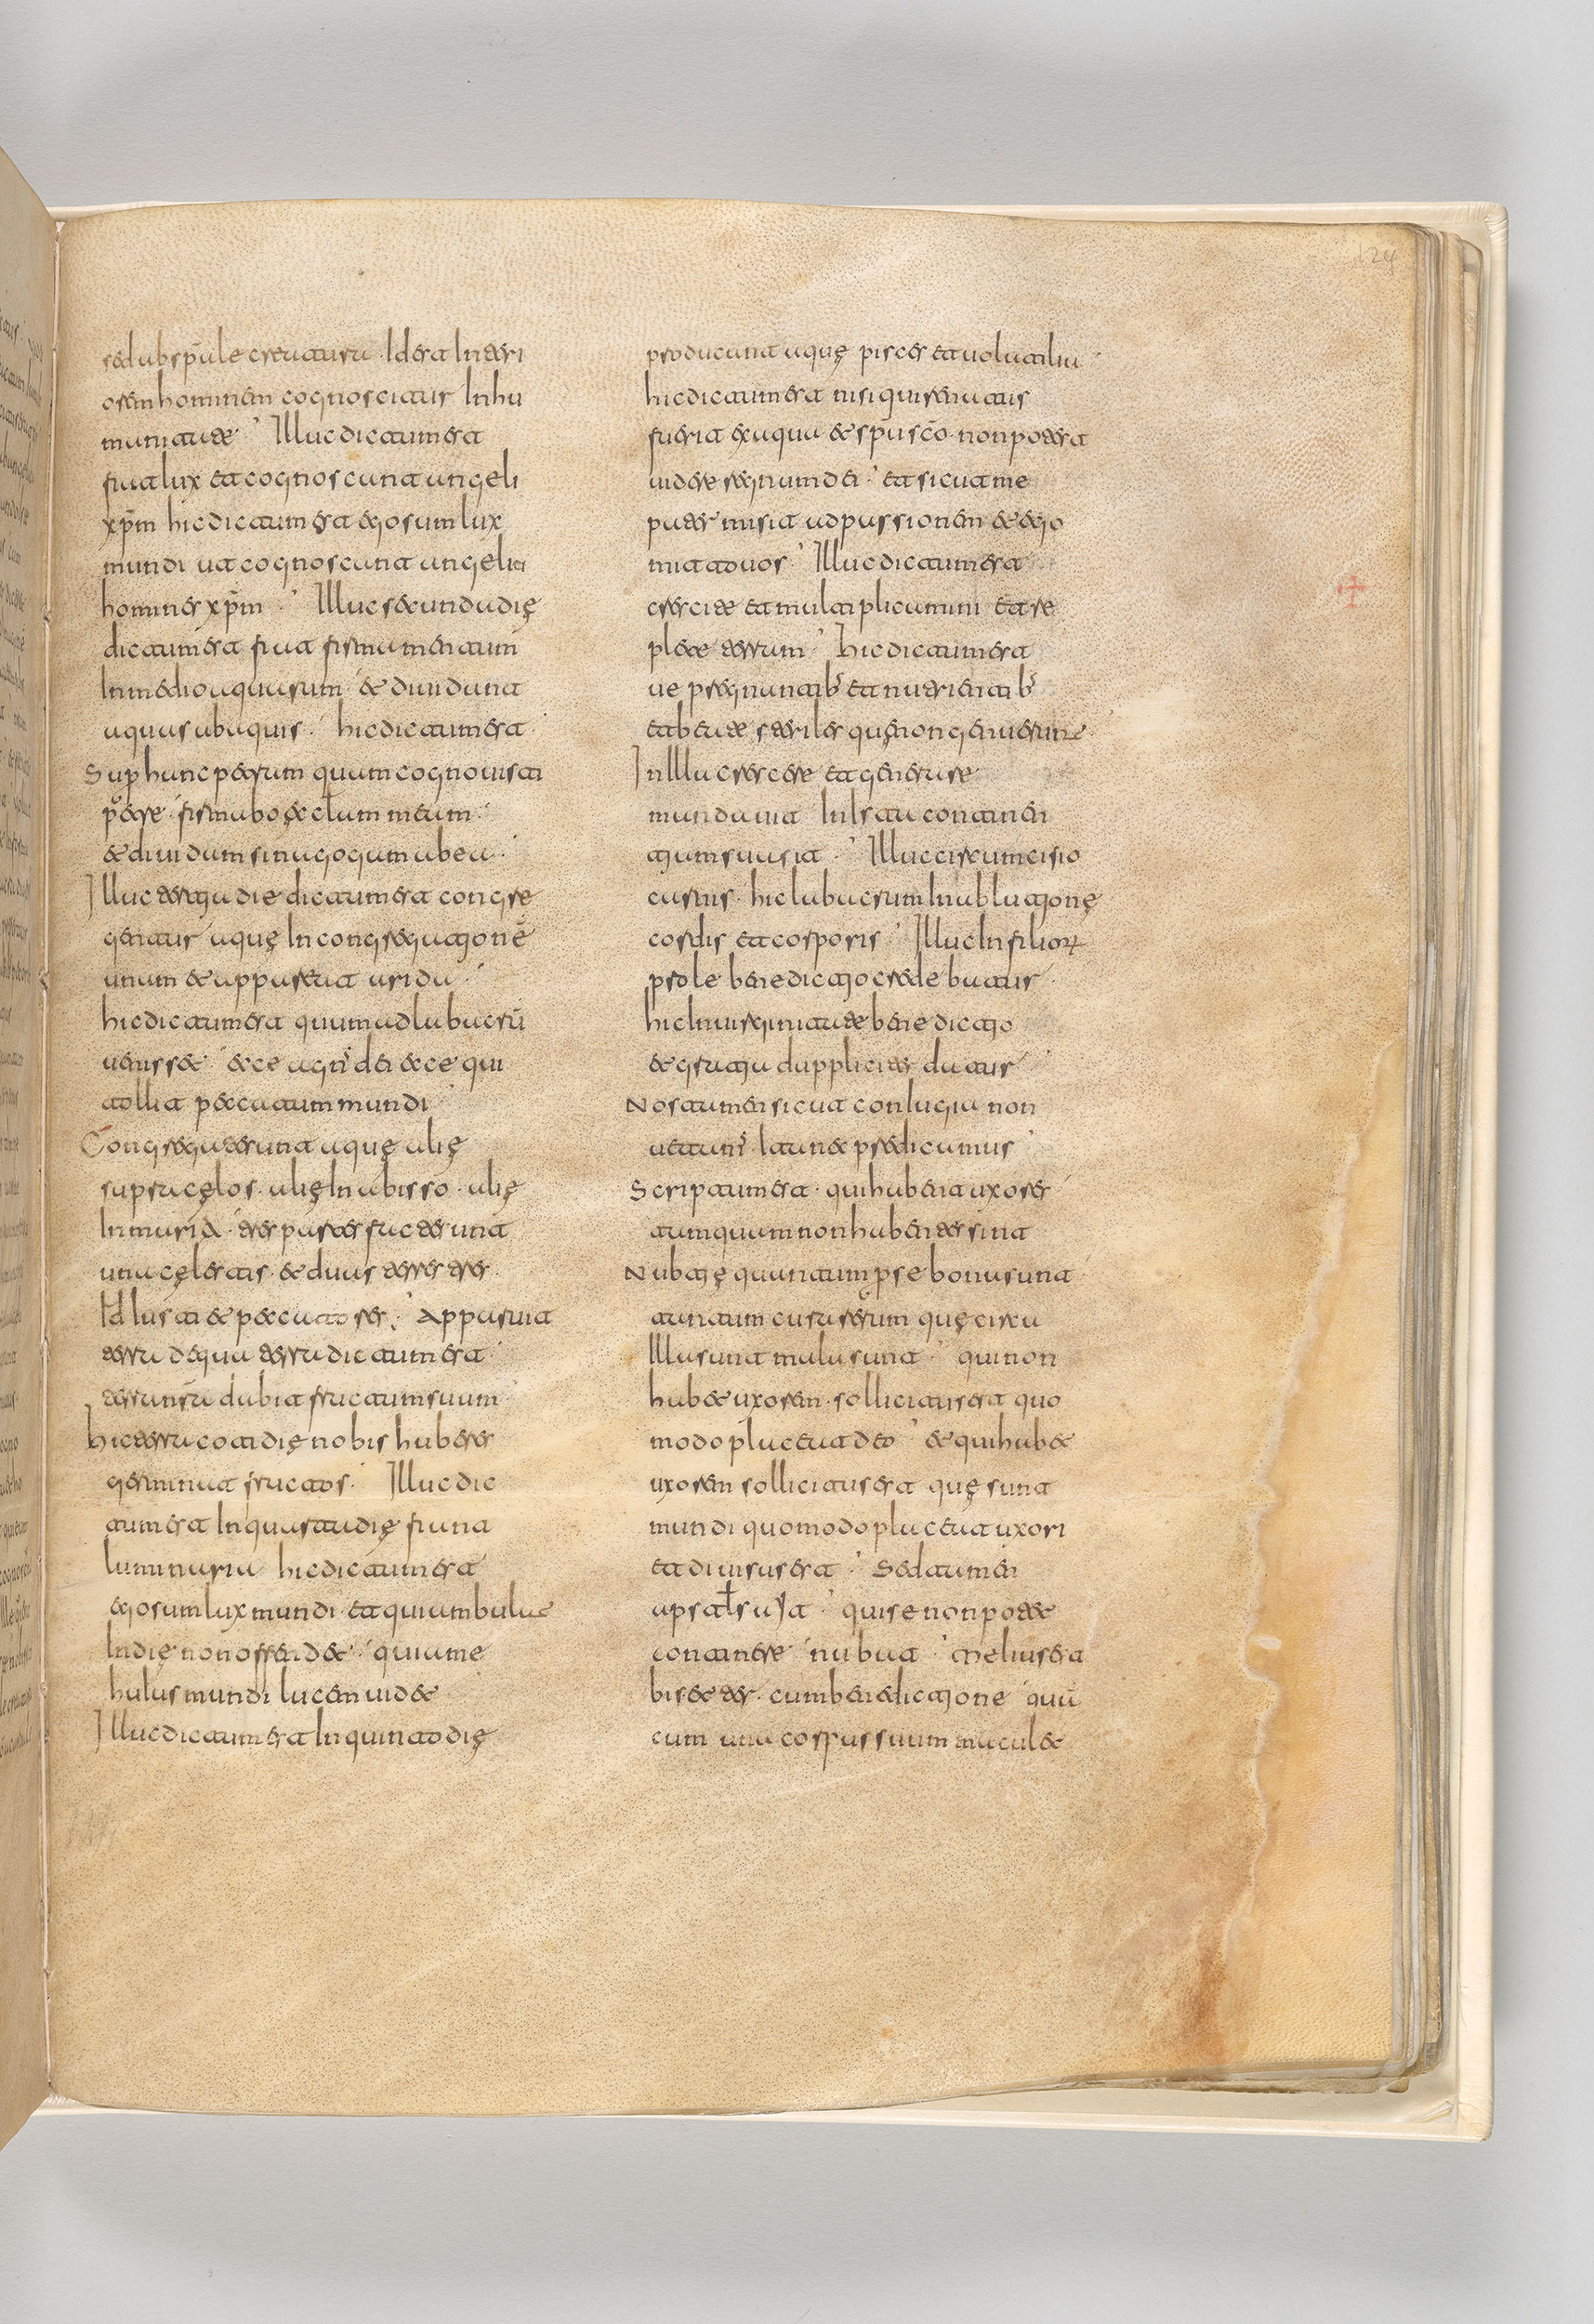 sed ab spūale creatura · Id est Interi
orem hominem cognoscitur Inhu
manitate · Illuc dictum est
fiat lux et cognoscunt angeli
xp̄m hic dictum est ego sum lux
mundi ut cognoscant angeli et
homines xp̄m · Illuc secunda dię
dictum est fiat firmamentum
In medio aquarum & diuidant
aquas ab aquis · hic dictum est
Sup hanc petram quum cognouisti
firmabo ęcl̄am meam
& diuidam sinagogam ab ea ·
Illuc tertia die dictum est congre
gentur aquę In congregationē
unam & appareat arida
hic dictum est quum ad labacrū
uenisset · ecce agn̄s dei ecce qui
tollit peccatum mundi
Congregate sunt aquę alię
supra cęlos · alię In abisso · alię
In mari & tres partes facte sunt
una cęlestis & duas terrestres
Id Iusti & peccatores · Apparuit
terra de qua terra dictum est
terra nr̄a dabit fructum suum
hic terra cotidię nobis haberes
germinat fructos · Illuc dic
tum est In quarta dię fiant
luminaria hic dictum est
ego sum lux mundi et qui ambulat
In dię non offendet qui ame
hulus mundi lucem uidet
Illuc dictum est In quinto dię
producunt aquę pisces et uolatilia
hic dictum est nisi qui renatus
fuerit ex aqua & spu sc̄o · non poterit
uidere regnum dei · et sicut me
pater misit ad passionem & ego
mitto uos · Illuc dictum est
crescite et multiplicamini et re
plete terram · hic dictum est
ue pregnantib's et nutrientib's
et beate steriles quę non genuerunt
In Illuc crescere et generare
mundauit In Ista continen
tiam suasit · Illuc circumcisio
carnis · hic labacrum In ablutionę
cordis et corporis · Illuc In filior
prole benedictio credebatur
hic In uirginitate benedictio
& gratia dapplicite datur
Nos tamen sicut coniugia non
uetam's Ita nec predicamus
Scriptum est · qui habent uxores
tamquam non habentes sint
Nubtię quantum p se bone sunt
tantum cura rerum quę circa
Illas sunt mala sunt · qui non
habet uxorem · sollicitus est quo
modo placeat deo · & qui habet
uxorem sollicitus est quę sunt
mundi quomodo placeat uxori
et diuisus est · Sed tamen
apstls ait · qui se non potest
continere nubat · melius est
cum benedictione quā
cum una corpus suum maculet